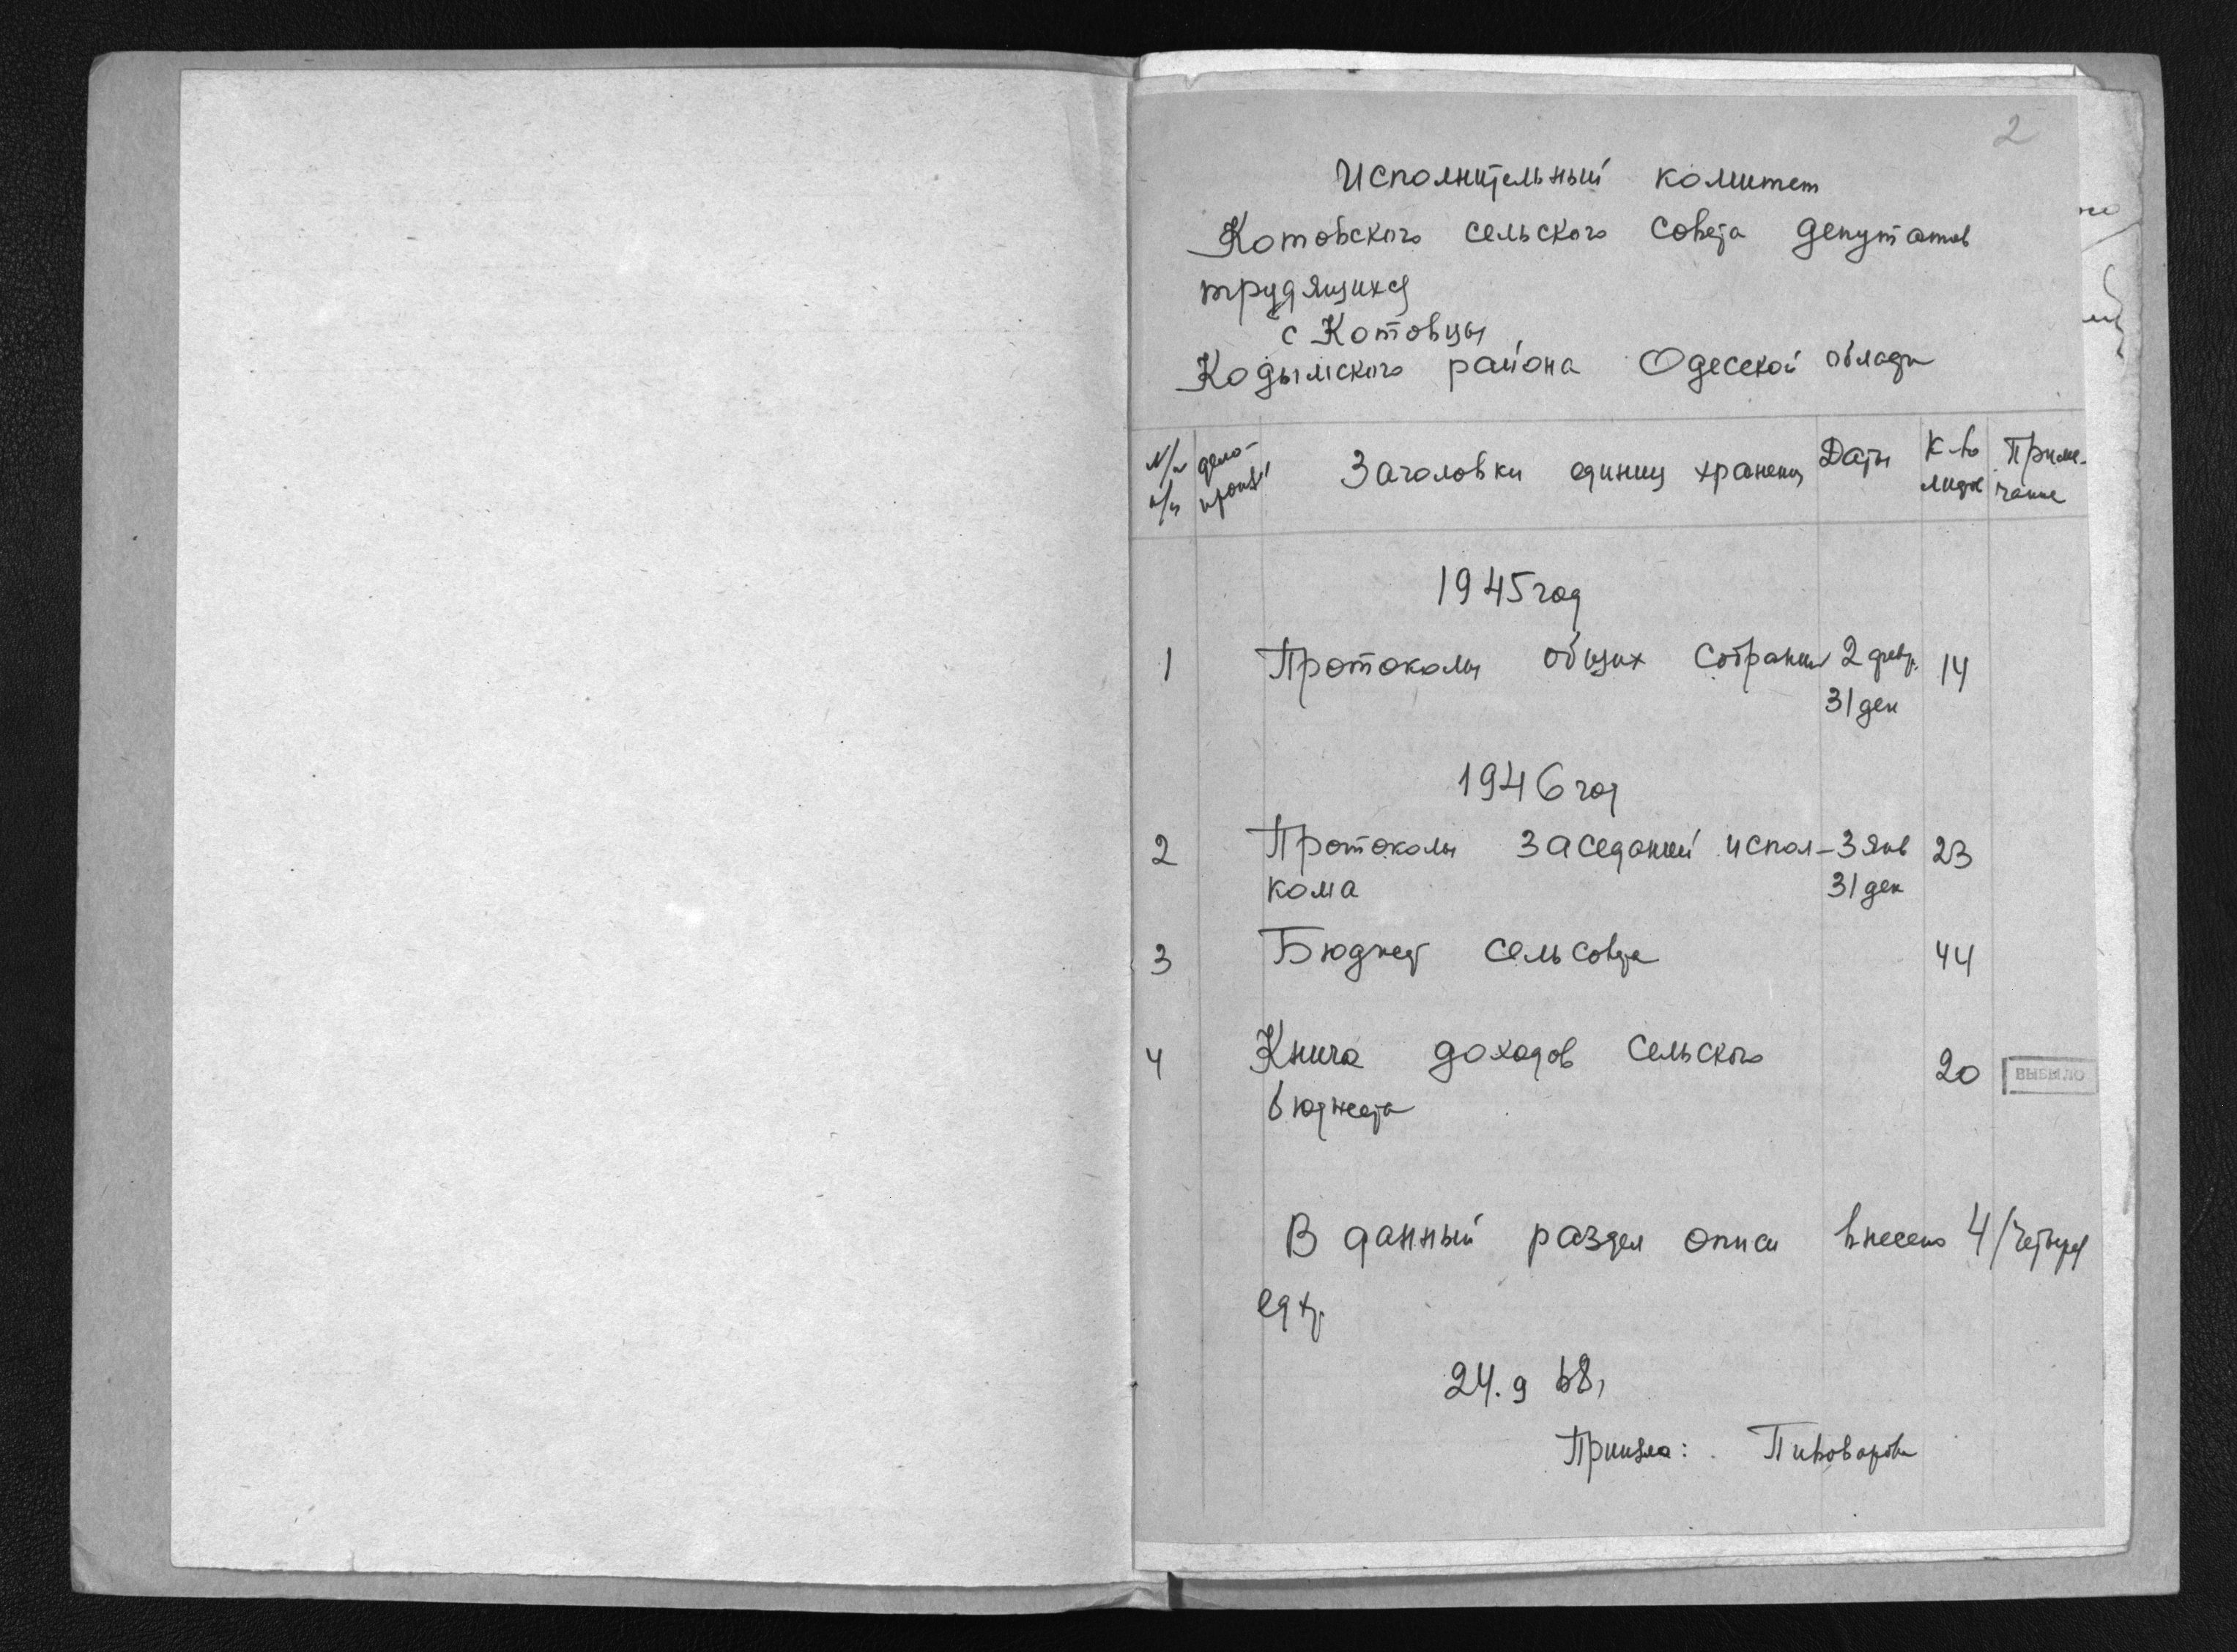 2
Исполнительный комитет
Котовского сельского совета депутатов
трудящихся
с Котовцы
Кодымского района Одесской области
N/N п/п дело-произ. Заголовки единиц хранения Даты К-во листов Приме-чание
1945 год
1 Протоколы общих собраний 2 февр. 14
31 дек
1946 год
2 Протоколы заседаний испол- 3 янв 23
кома 31 дек
3 Бюджет сельсовета 44
4 Книга доходов сельского 20 ВЫБЫЛО
бюджета
В данный раздел описи внесено 4 /четыре/
ед хр.
24. 9 68,
Приняла: Пивоварова